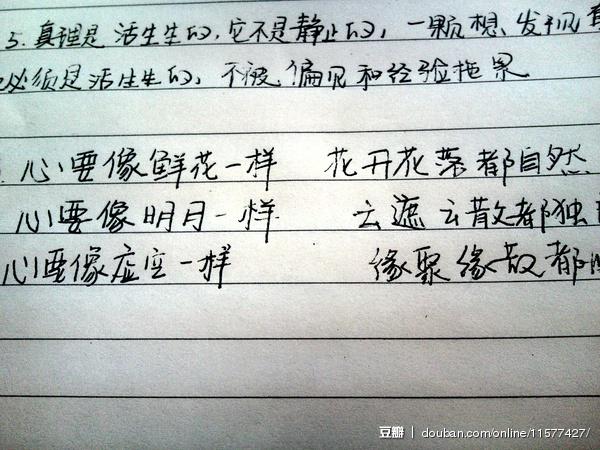 5.真理是活生生的,它不是静止的,一颗想、发现
必须是活生生的,不被偏见和经验拖累
心要像鲜花一样 花开花落都自然
心要像明月一样 云遮云散都独
心要像虚空一样 缘聚缘散都
豆瓣 douban.com/online/11577427/